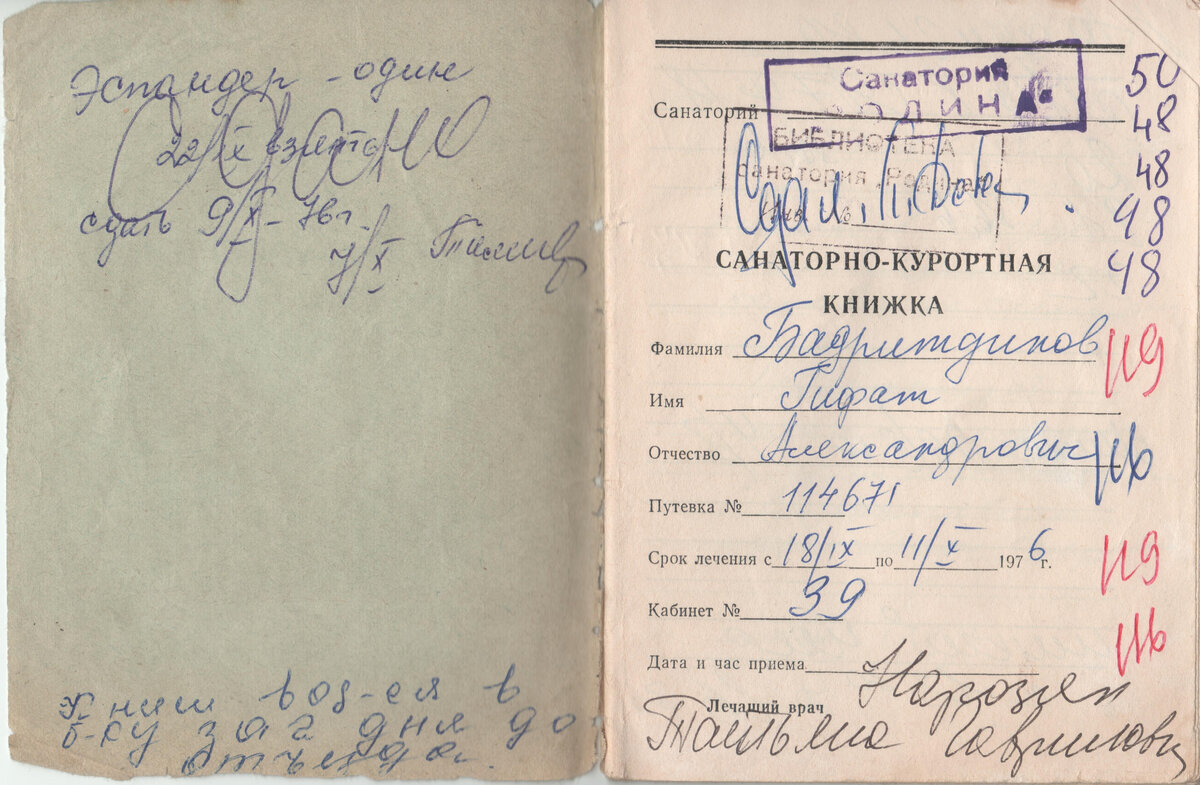 Эспандер - один
22/IX взято
сдать 9/X - 76г.
7/X
Книги воз-ся в
б-ку за 2 дня до
отъезда.
Санатория
РОДИНА"
Санаторий
БИБЛИОТЕКА
санатория „Родина"
Инв. №
Сдал
САНАТОРНО-КУРОРТНАЯ
КНИЖКА
Фамилия Бадритдинов
Имя Гифат
Отчество Александрович
Путевка № 114671
Срок лечения с 18/IX по 11/X 1976 г.
Кабинет № 39
Дата и час приема
Лечащий врач
Татьяна Гавриловна
50
48
48
48
48
119
116
119
116